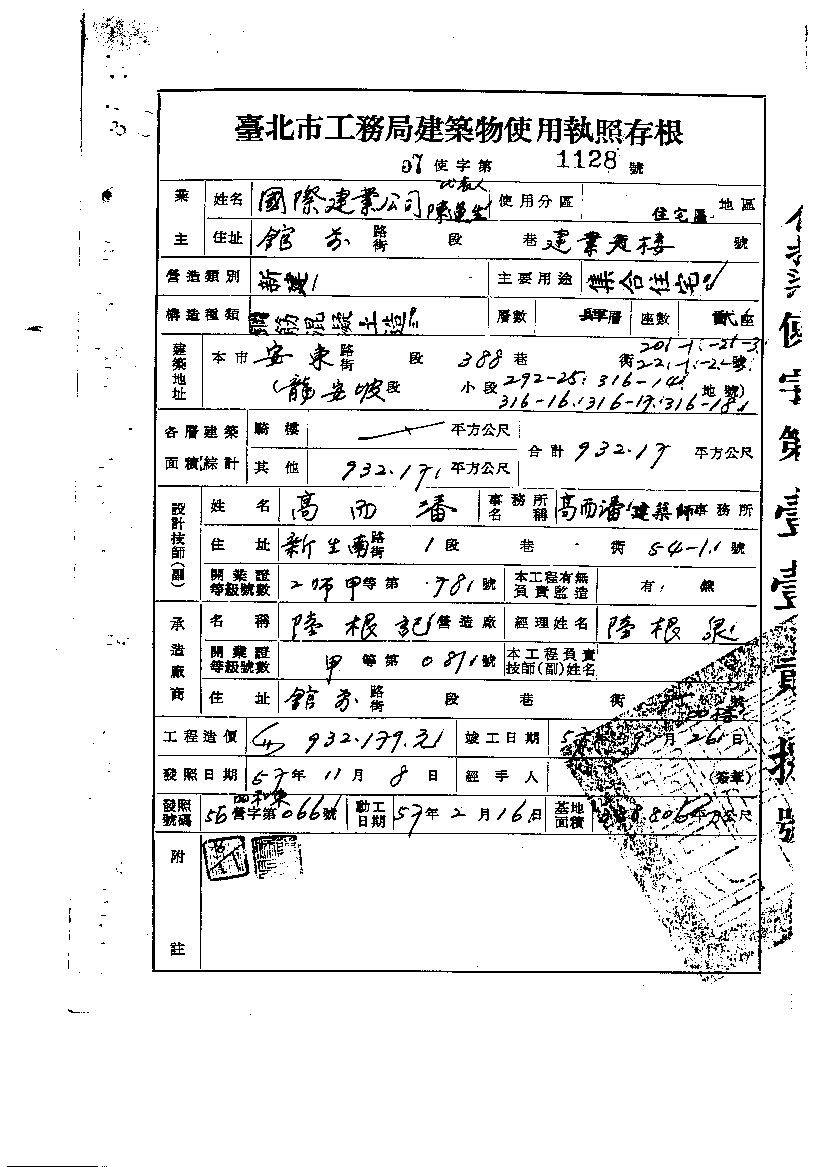 臺北市工務局建築物使用執照存根
57 使字第 1128 號
業主 姓名 國際建業公司 代表人 使用分區 住宅區 地區
住址 館前 路街 段 巷 建業大樓 號
營造類別 新建 主要用途 集合住宅
構造種類 鋼筋混凝土造 層數 層 座數 貳座
建築地址 本市 安東 路街 段 388 巷 街 號
(龍安坡 段 小段 292-25 316-14 地號)
316-16 316-17 316-18
各層建築面積綜計 騎樓 平方公尺 合計 932.17 平方公尺
其他 932.17 平方公尺
設計技師(副) 姓名 高而潘 事務所名稱 高而潘建築師事務所
住址 新生南 路街 1 段 巷 街 54-1 號
開業證等級號數 工師甲等第 781 號 本工程有無負責監造 有 無
承造廠商 名稱 陸根記 營造廠 經理姓名 陸根泉
開業證等級號數 甲等第 081 號 本工程負責技師(副)姓名
住址 館前 路街 段 巷 街 號
工程造價 932.179.元 竣工日期 57 9 月 26 日
發照日期 57 年 11 月 8 日 經手人 (簽章)
發照號碼 56 營字第 0661 號 動工日期 57 年 2 月 16 日 基地面積 平方公尺
附註
使字第壹壹貳捌號